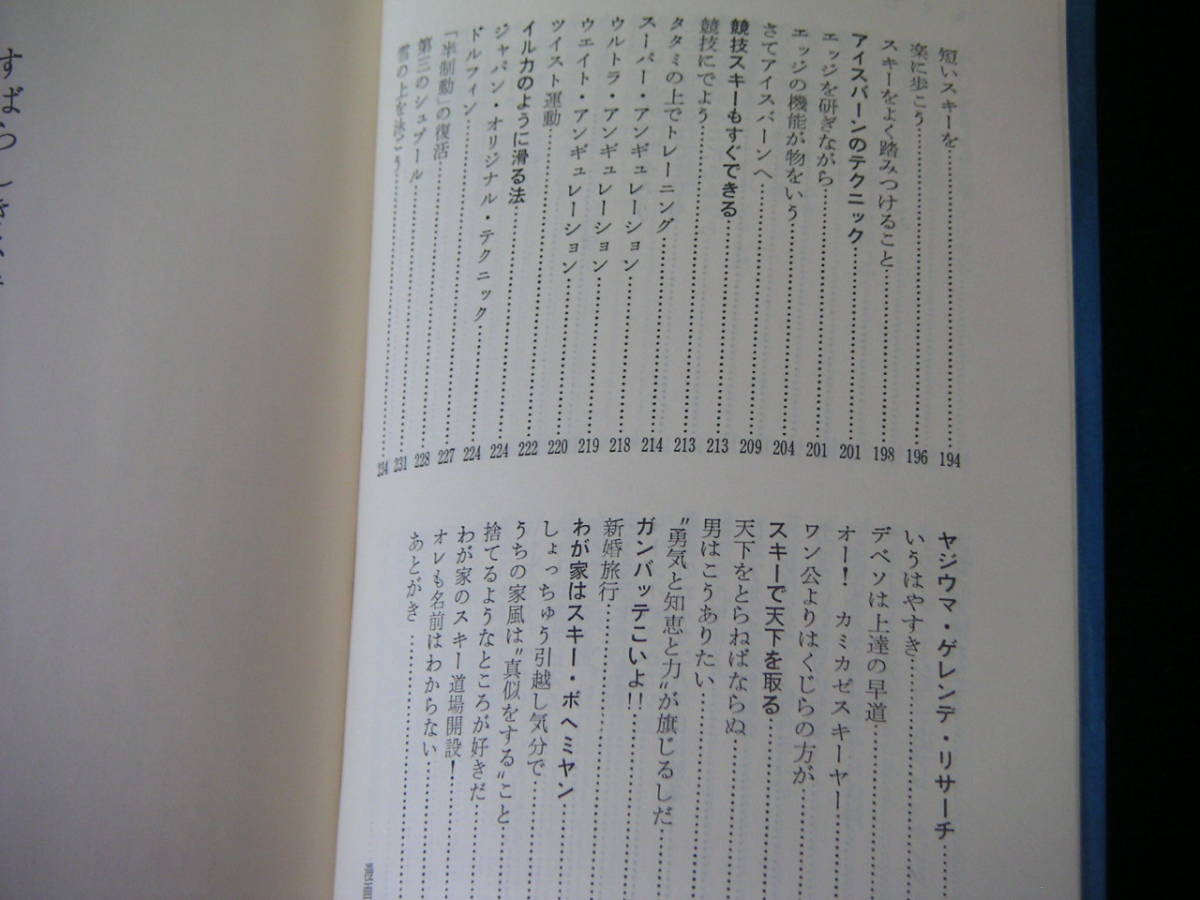 短いスキーを……194
楽に歩こう……196
スキーをよく踏みつけること……198
アイスバーンのテクニック……201
エッジを研ぎながら……201
エッジの機能が物をいう……204
さてアイスバーンへ……209
競技スキーもすぐできる……213
競技にでよう……213
タタミの上でトレーニング……214
スーパー・アンギュレーション……218
ウルトラ・アンギュレーション……219
ウエイト・アンギュレーション……220
ツイスト運動……222
イルカのように滑る法……224
ジャパン・オリジナル・テクニック……224
ドルフィン……227
「半制動」の復活……228
第三のシュプール……231
雪の上を泳ごう……234
ヤジウマ・ゲレンデ・リサーチ……
いうはやすき……
デベソは上達の早道……
オー！　カミカゼスキーヤー……
ワン公よりはくじらの方が……
スキーで天下を取る……
天下をとらねばならぬ……
男はこうありたい……
“勇気と知恵と力”が旗じるしだ……
ガンバッテこいよ!!……
新婚旅行……
わが家はスキー・ボヘミヤン……
しょっちゅう引越し気分で……
うちの家風は“真似をする”こと……
捨てるようなところが好きだ……
わが家のスキー道場開設！……
オレも名前はわからない……
あとがき……
漫画
すばらしき